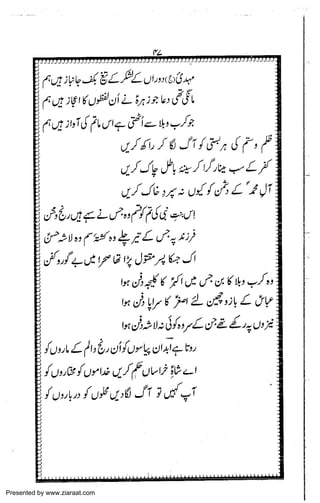 ۴۷
مہدیؑ دوراں کے لشکر کے تیغ بکف جانباز ہیں ہم
مانگی تھی دعا جو زہرہؑ نے اُن لفظوں کا اعجاز ہیں ہم
جو کرب و بلا سے اٹھتی ہے اس ماتم کی آواز ہیں ہم
ظلم و ستم کی ہر بستی کو آگ لگا کر راکھ کریں
کفر کے سب مینار گرا کر سینۂ باطل چاک کریں
آلِ محمدؐ کے دشمن کو کیوں نہ سپردِ خاک کریں
اس بنتِ نبی کی قسم ہم کو جس نے سہے ہیں رنج و محن
فرزند پہ جس کے تیر چلے وہ کشتۂ سم وہ لاشۂ حسنؑ
اک جسکا پسر مقتول پڑا تھا صحرا میں بے گور و کفن
وہ کرب و بلا کا بن جس میں اکبرؑ کا کلیجہ دفن ہوا
عباسؑ کے بازو چھین لئے اصغرؑ کا سراپا دفن ہوا
نیزوں پہ رکھے تھے جن کے سر کوئی نہ لاشہ دفن ہوا
روتا ہے ابد ان پیاسوں کو اُن رنج و الم کے ماروں کو
اے شاہِ خراساں حکم کریں خداموں کو مختاروں کو
آپ کہیں تو آگ لگا دیں محلوں کو درباروں کو
Presented by www.ziaraat.com